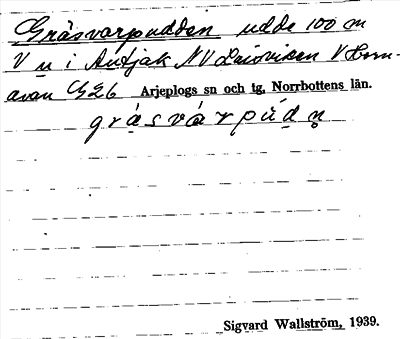 Gräsvarpudden udde 100 m
V u i Autjak NV Laisviken V Horn-
avan G26 Arjeplogs sn och tg, Norrbottens län.
gräsvárpúdn̥
Sigvard Wallström, 1939.